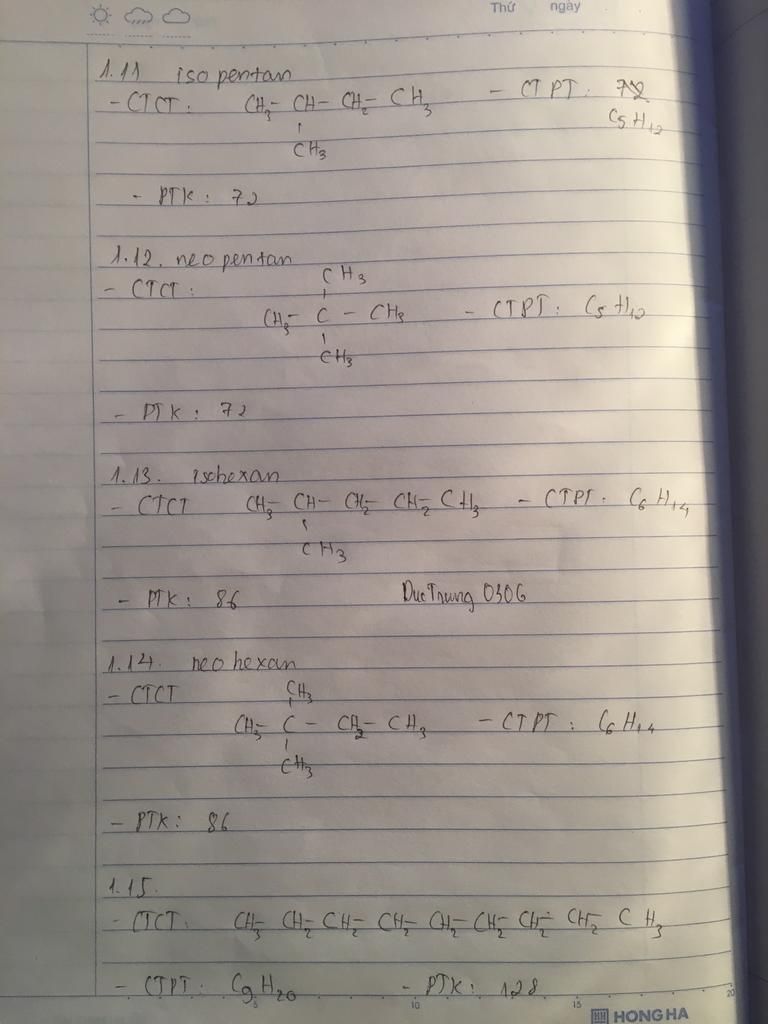 Thứ ngày
1.11 isopentan
- CTCT: CH3- CH - CH2- CH3 - CTPT: 72
CH3 C5H12
- PTK: 72
1.12. neopentan
CH3
- CTCT:
CH3- C - CH3 - CTPT: C5H12
CH3
- PTK: 72
1.13. isohexan
- CTCT CH3- CH- CH2- CH2- CH3 - CTPT: C6H14
CH3
- PTK: 86 DucTrung 0306
1.14. neohexan
- CTCT CH3
CH3- C - CH2- CH3 - CTPT: C6H14
CH3
- PTK: 86
1.15.
- CTCT: CH3- CH2- CH2- CH2- CH2- CH2- CH2- CH2- CH3
- CTPT: C9H20 - PTK: 128
5 10 15 20
HH HONG HA